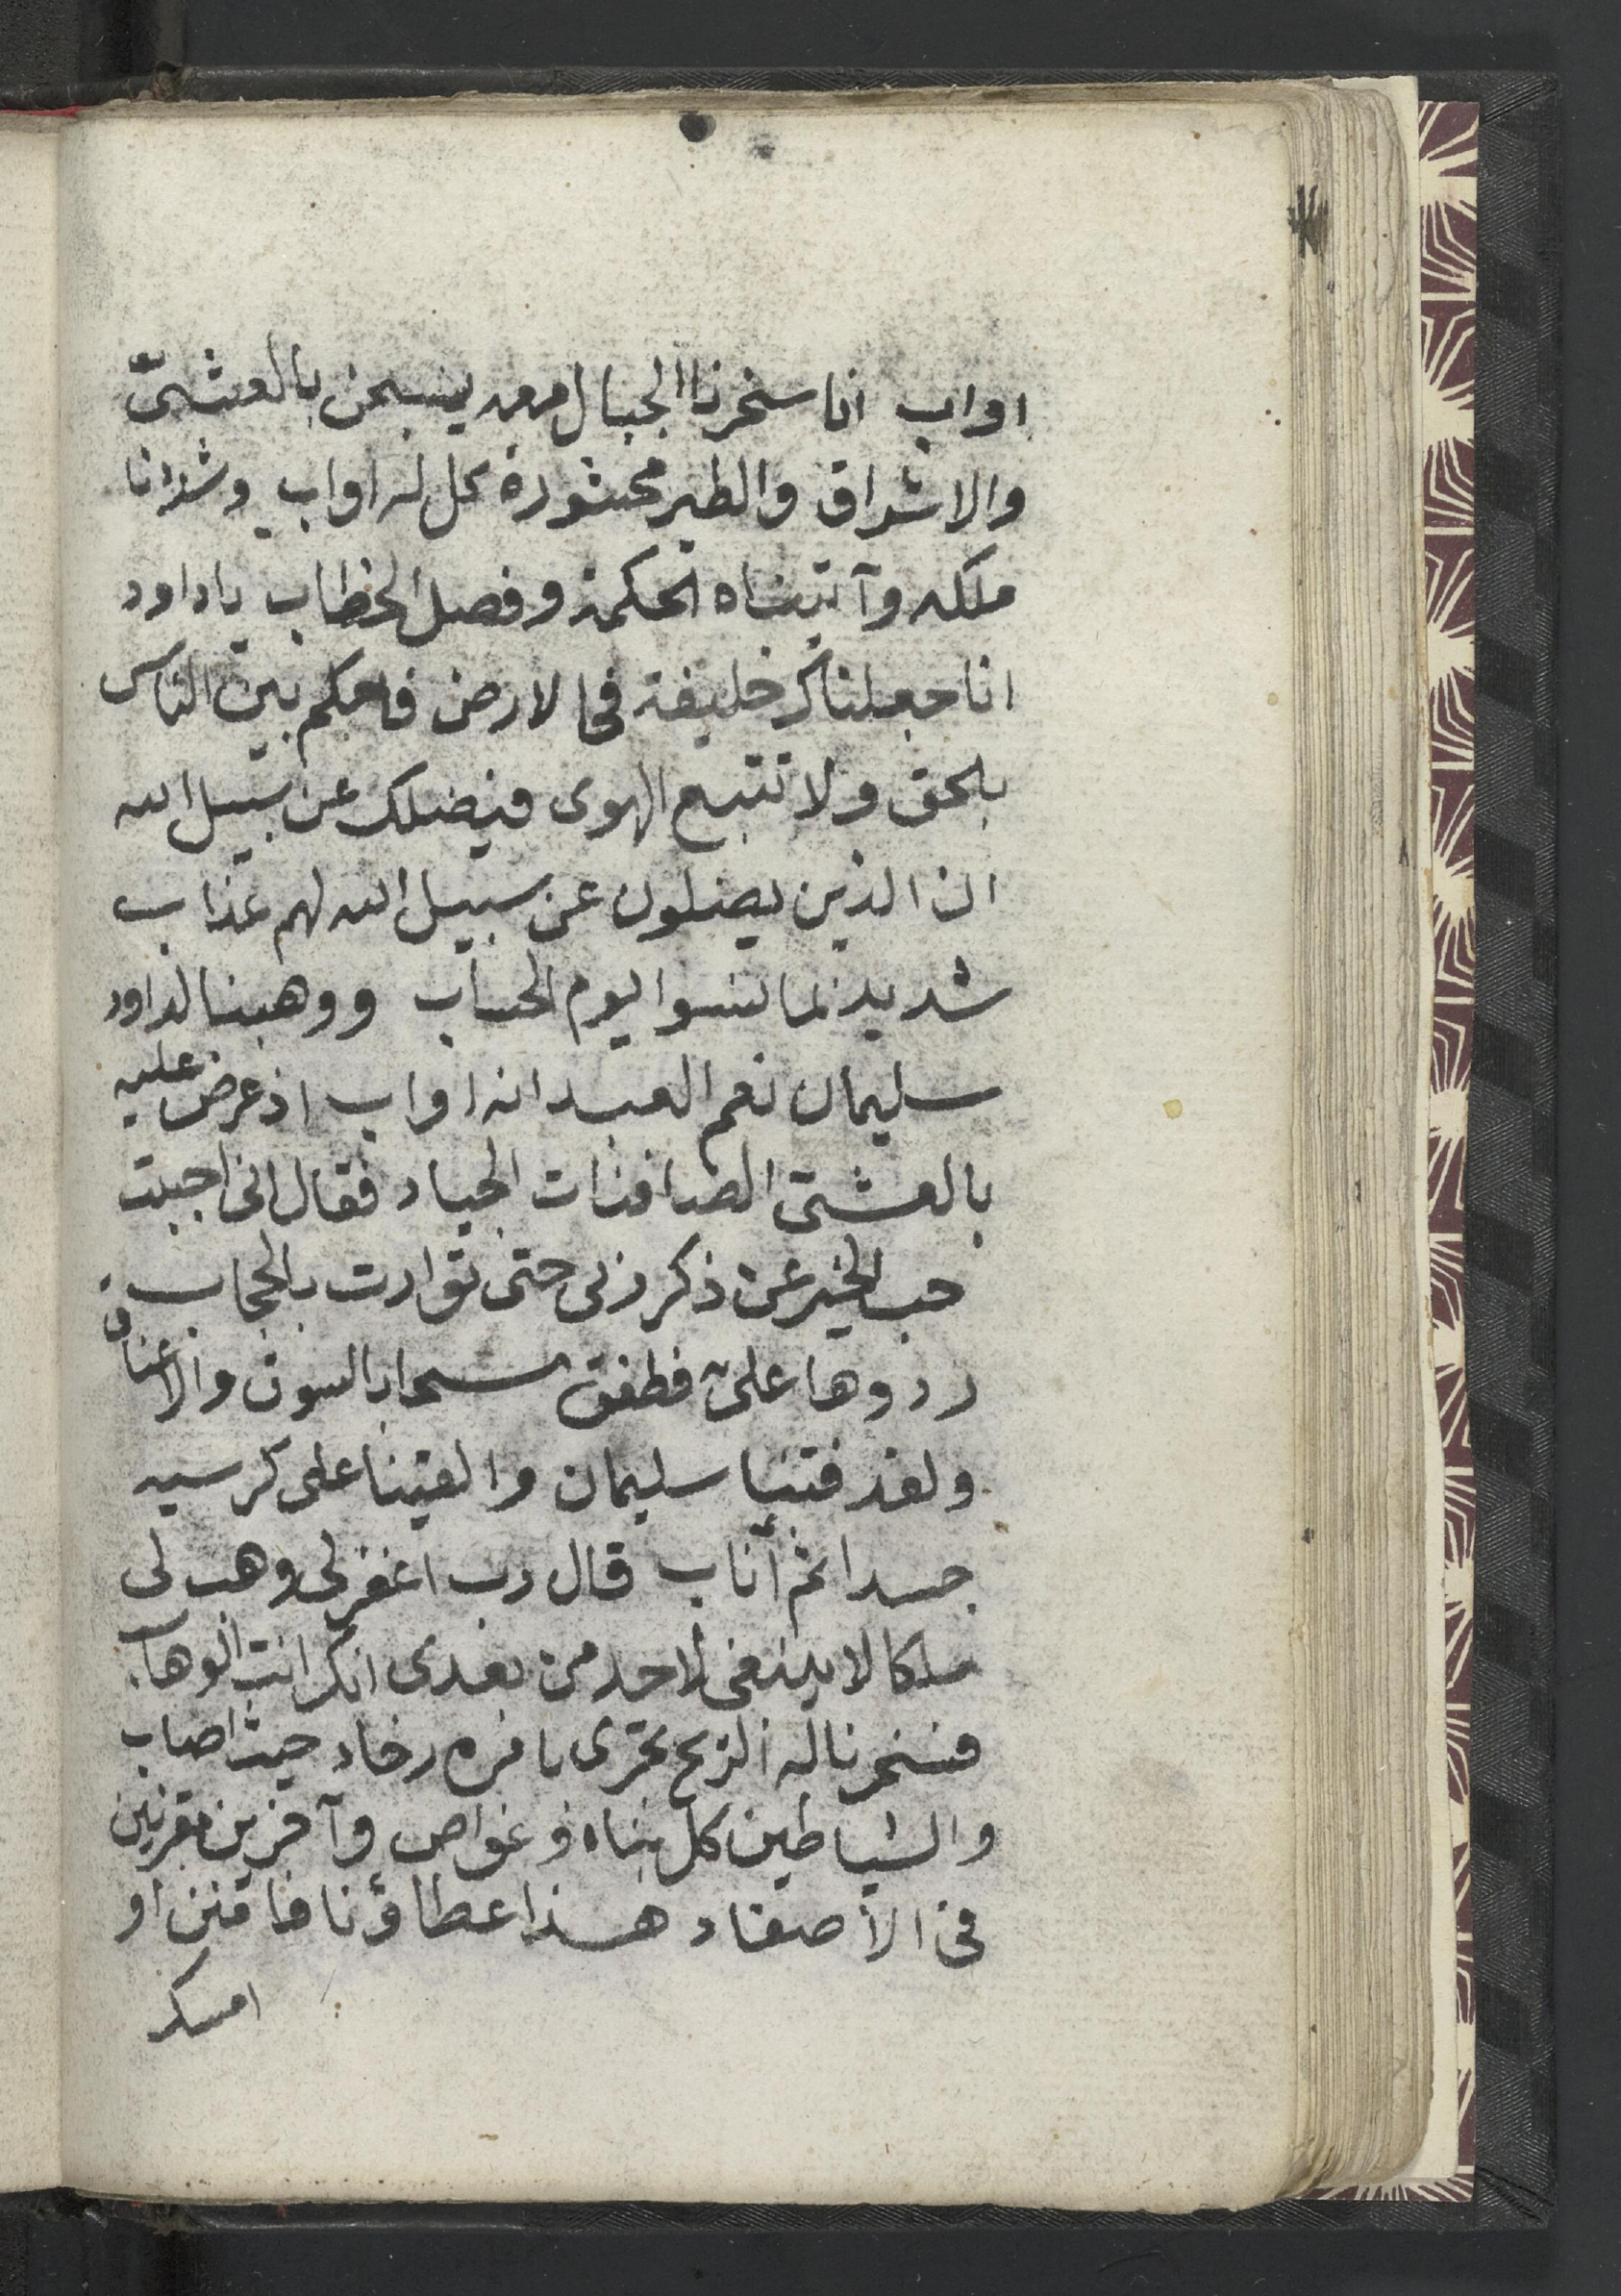 اواب انا سخرنا الجبال معه يسبحن بالعشىّ
والاشراق والطير محشورة كل له اواب وشددنا
ملكه وآتيناه الحكمة وفصل الخطاب ياداود
انا جعلناك خليفة فى الارض فاحكم بين الناس
بلحق ولا تتبع الهوى فيضلك عن سبيل الله
ان الذين يضلون عن سبيل الله لهم عذاب
شديد بما نسوا يوم الحساب ووهبنا لداود
سليمان نعم العبد انه اواب اذ عرض عليه
بالعشىّ الصافنات الجياد فقال انى احببت
حب الخير عن ذكر ربى حتى توارت بالحجاب
ردوها علىّ فطفق مسحا بالسوق والاعناق
ولقد فتنا سليمان والقينا على كرسيه
جسدا ثم أناب قال رب اغفر لى وهب لى
ملكا لا ينبغى لاحد من بعدى انك انت الوهاب
فسخرنا له الريح تجرى بامره رخاء حيث اصاب
والشياطين كل بناء وغواص وآخرين مقرنين
فى الأصفاد هذا عطاؤنا فامنن او
امسك